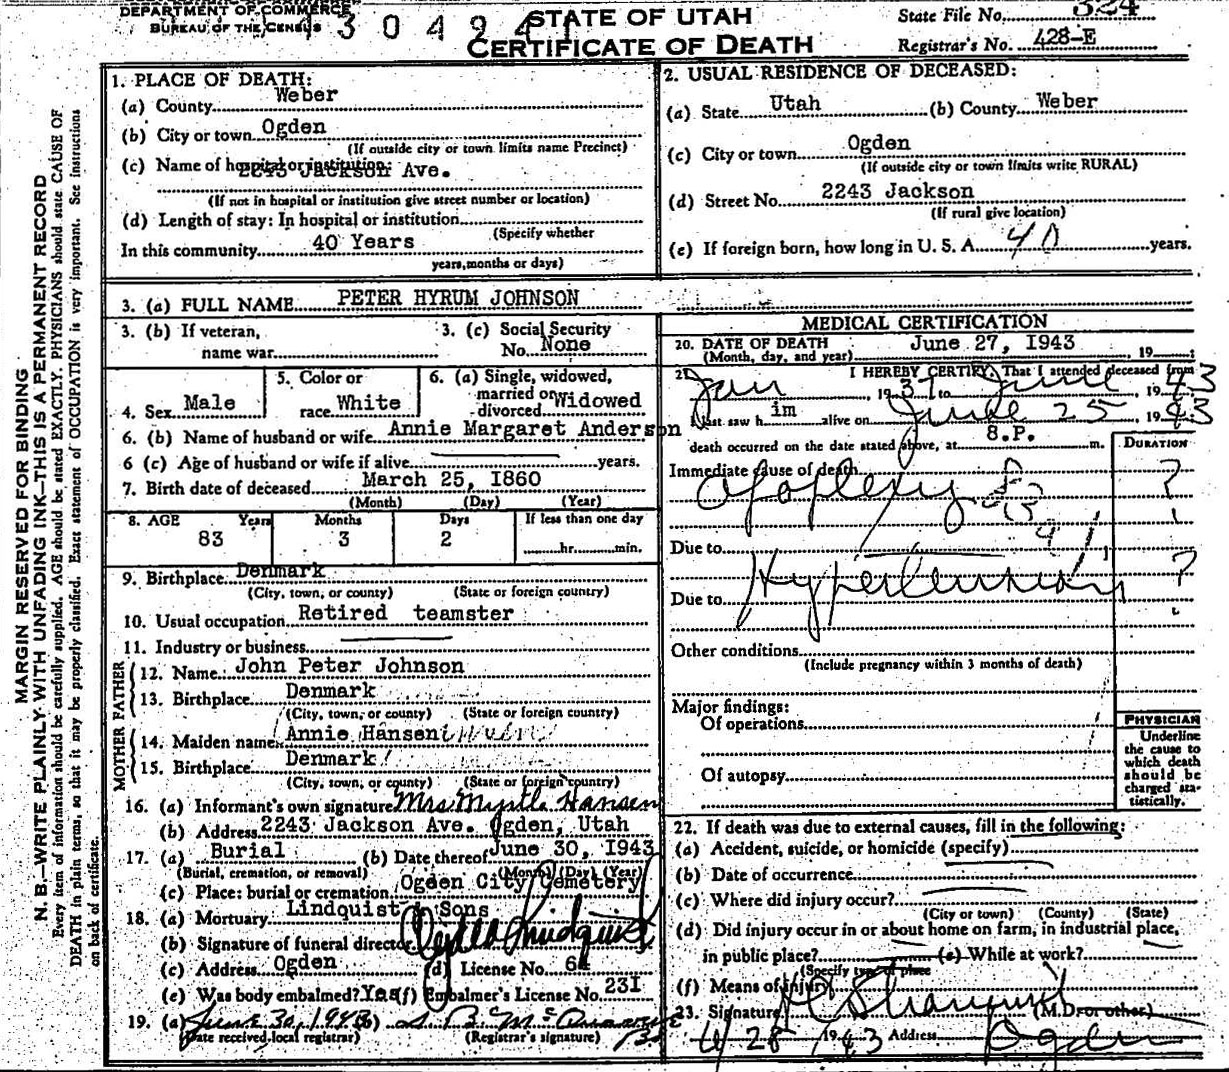 DEPARTMENT OF COMMERCE
BUREAU OF THE CENSUS
STATE OF UTAH
CERTIFICATE OF DEATH
State File No. 324
Registrar's No. 428-E
MARGIN RESERVED FOR BINDING
N. B.—WRITE PLAINLY, WITH UNFADING INK—THIS IS A PERMANENT RECORD
Every item of information should be carefully supplied. AGE should be stated EXACTLY. PHYSICIANS should state CAUSE OF
DEATH in plain terms, so that it may be properly classified. Exact statement of OCCUPATION is very important. See instructions
on back of certificate.
1. PLACE OF DEATH:
(a) County Weber
(b) City or town Ogden
(If outside city or town limits name Precinct)
(c) Name of hospital or institution:
2243 Jackson Ave.
(If not in hospital or institution give street number or location)
(d) Length of stay: In hospital or institution
(Specify whether
In this community 40 Years
years, months or days)
2. USUAL RESIDENCE OF DECEASED:
(a) State Utah (b) County Weber
(c) City or town Ogden
(If outside city or town limits write RURAL)
(d) Street No. 2243 Jackson
(If rural give location)
(e) If foreign born, how long in U. S. A. 40 years.
3. (a) FULL NAME PETER HYRUM JOHNSON
3. (b) If veteran,
name war
3. (c) Social Security
No. None
4. Sex Male
5. Color or
race White
6. (a) Single, widowed,
married or
divorced Widowed
6. (b) Name of husband or wife Annie Margaret Anderson
6 (c) Age of husband or wife if alive years.
7. Birth date of deceased March 25, 1860
(Month) (Day) (Year)
8. AGE Years Months Days If less than one day
83 3 2 hr. min.
9. Birthplace Denmark
(City, town, or county) (State or foreign country)
10. Usual occupation Retired teamster
11. Industry or business
FATHER
12. Name John Peter Johnson
13. Birthplace Denmark
(City, town, or county) (State or foreign country)
MOTHER
14. Maiden name Annie Hansen
15. Birthplace Denmark
(City, town, or county) (State or foreign country)
16. (a) Informant's own signature Mrs. Myrtle Hansen
(b) Address 2243 Jackson Ave. Ogden, Utah
17. (a) Burial (b) Date thereof June 30, 1943
(Burial, cremation, or removal) (Month) (Day) (Year)
(c) Place: burial or cremation Ogden City Cemetery
18. (a) Mortuary Lindquist & Sons
(b) Signature of funeral director Lindquist
(c) Address Ogden (d) License No. 64
(e) Was body embalmed? Yes (f) Embalmer's License No. 231
19. (a) June 30, 1943 (b)
(Date received local registrar) (Registrar's signature)
MEDICAL CERTIFICATION
20. DATE OF DEATH June 27, 1943
(Month, day, and year) , 19
21. I HEREBY CERTIFY, That I attended deceased from
Jan , 1937 to June , 1943
I last saw him alive on June 25 , 1943
death occurred on the date stated above, at 8.P. m.
DURATION
Immediate cause of death
Apoplexy ?
Due to
Hypertension ?
Due to
Other conditions
(Include pregnancy within 3 months of death)
Major findings:
Of operations
Of autopsy
PHYSICIAN
Underline
the cause to
which death
should be
charged sta-
tistically.
22. If death was due to external causes, fill in the following:
(a) Accident, suicide, or homicide (specify)
(b) Date of occurrence
(c) Where did injury occur?
(City or town) (County) (State)
(d) Did injury occur in or about home on farm, in industrial place,
in public place? (e) While at work?
(Specify type of place
(f) Means of injury
23. Signature (M.D. or other)
6/28 1943 Address Ogden